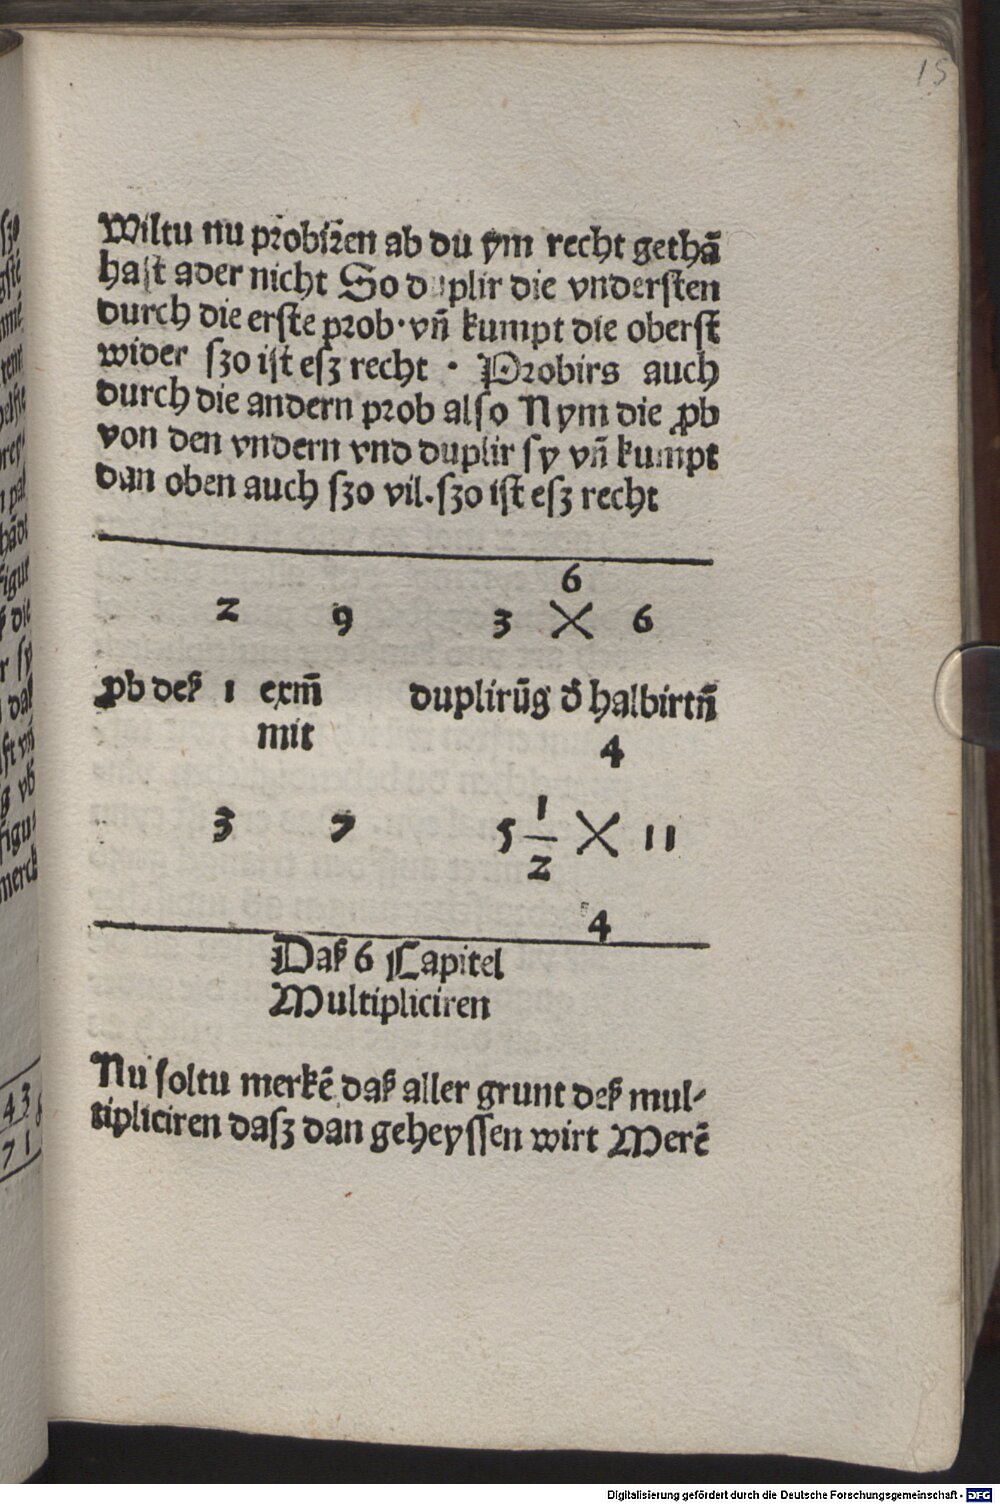 15
Wiltu nu probirꝛen ab du ym recht gethā
hast ader nicht So duplir die vndersten
durch die erste prob · vn̄ kumpt die oberst̄
wider szo ist esz recht · Probirs auch
durch die andern prob also Nym die ꝓb
von den vndern vnd duplir sy vn̄ kumpt
dan oben auch szo vil. szo ist esz recht
6
2 9 3 6
ꝓb deß 1 exm̄ duplirūg d̄ halbirtn̄
mit 4
3 7 5 1/2 11
4
Daß 6 Capitel
Multipliciren
Nu soltu merkē daß aller grunt deß mul-
tipliciren dasz dan geheyssen wirt Merē
Digitalisierung gefördert durch die Deutsche Forschungsgemeinschaft - DFG